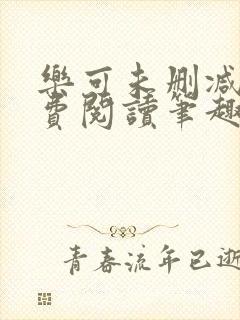 樂可未删减
費閱讀筆趣
青春流年已逝